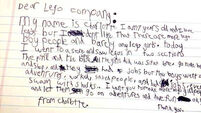 Dear Lego company:
My name is Charlotte. I am 7 years old and I love
legos but I don't like that there are more lego
boy people and barely any lego girls. today
I went to a store and saw legos in two sections
the pink and the blue. All the girls did was sit at home, go to the beach,
and shop, and had no jobs but the boys went on
adventures, worked, saved people, and had jobs, even
swam with sharks. I want you to make more lego girl
people and let them go on adventures and have fun
Thank you.
from Charlotte.